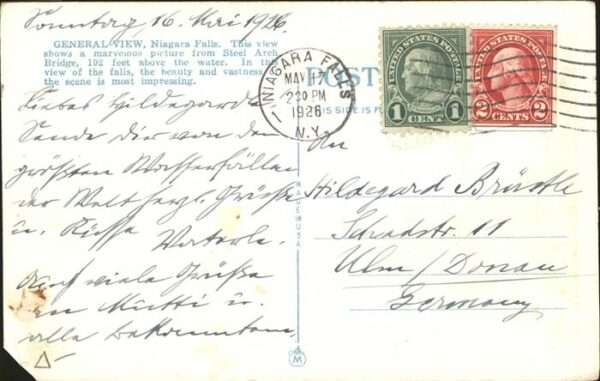 Sonntag 16. Mai 1926
GENERAL VIEW, Niagara Falls. This view
shows a marvelous picture from Steel Arch
Bridge, 192 feet above the water. In this
view of the falls, the beauty and vastness of
the scene is most impressing.
POST
THIS SIDE IS F
NIAGARA FALLS
MAY 17
2 30 PM
1926
N.Y.
1
UNITED STATES POSTAGE
1 CENT 1
UNITED STATES POSTAGE
2 CENTS 2
Liebes Hildegardle
Sende dir von den
größten Wasserfällen
der Welt herzl. Grüße
u. Küsse
Vaterle.
Auch viele Grüße
an Mutti u.
alle Bekannten.
MADE IN USA
An
Hildegard Brüstle
Schadstr. 11
Ulm / Donau
Germany